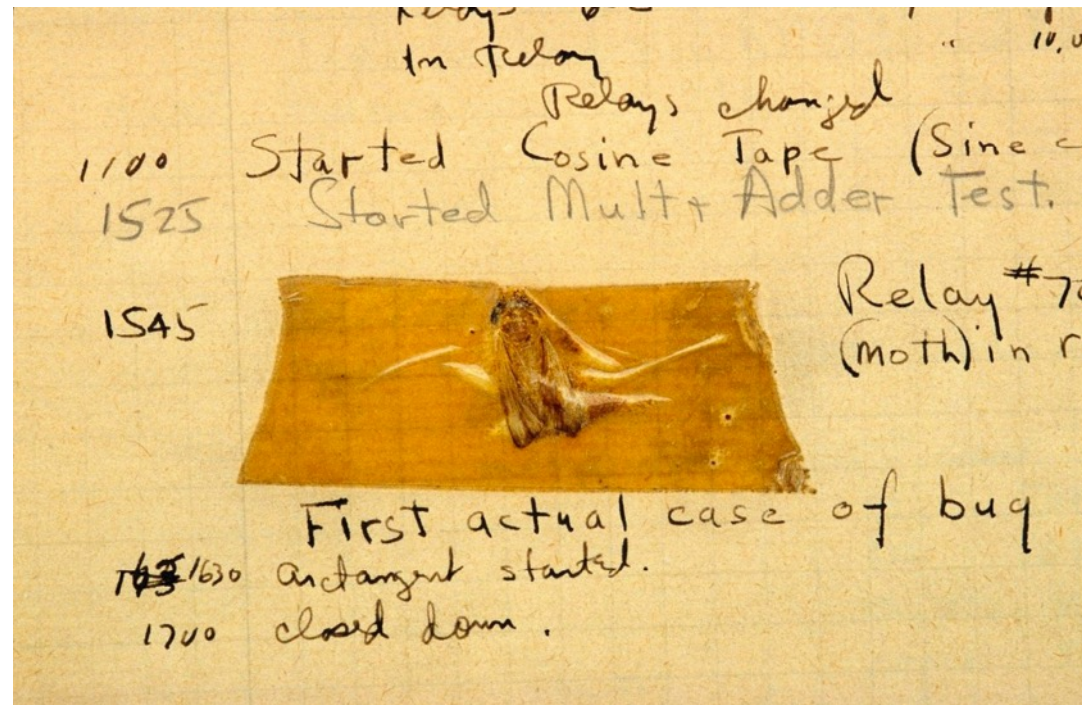 Relays
In Relay
Relays changed
1100 Started Cosine Tape (Sine c
1525 Started Mult+ Adder Test.
1545 Relay #70
(moth) in r
First actual case of bug
1630 arctangent started.
1700 closed down.